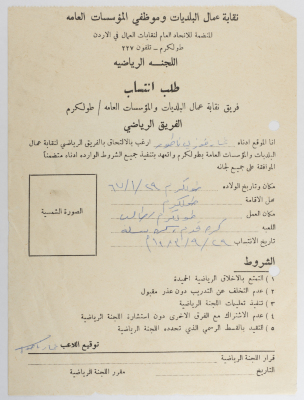 نقابة عمال البلديات وموظفي المؤسسات العامه
المنضمة للاتحاد العام لنقابات العمال في الاردن
طولكرم - تلفون ٢٢٧
اللجنه الرياضيه
طلب انتساب
فريق نقابة عمال البلديات والمؤسسات العامه / طولكرم
الفريق الرياضي
انا الموقع ادناه ارغب بالالتحاق بالفريق الرياضي لنقابة عمال
البلديات والمؤسسات العامة بطولكرم واتعهد بتنفيذ جميع الشروط الوارده ادناه متضمناً
الموافقة على جميع لجانه
الصورة الشمسية
مكان وتاريخ الولاده طولكرم
محل الاقامة طولكرم
مكان العمل طولكرم
اللعبه كرة قدم سله
تاريخ الانتساب
الشروط
١) التمتع بالاخلاق الرياضية الحميدة
٢) عدم التخلف عن التدريب دون عذر مقبول
٣) تنفيذ تعليمات اللجنة الرياضية
٤) عدم الاشتراك مع الفرق الاخرى دون استشارة اللجنة الرياضية
٥) التقيد بالقسط الرسمي الذي تحدده اللجنة الرياضية
توقيع اللاعب
قرار اللجنة الرياضية
التاريخ مقرر اللجنة الرياضية